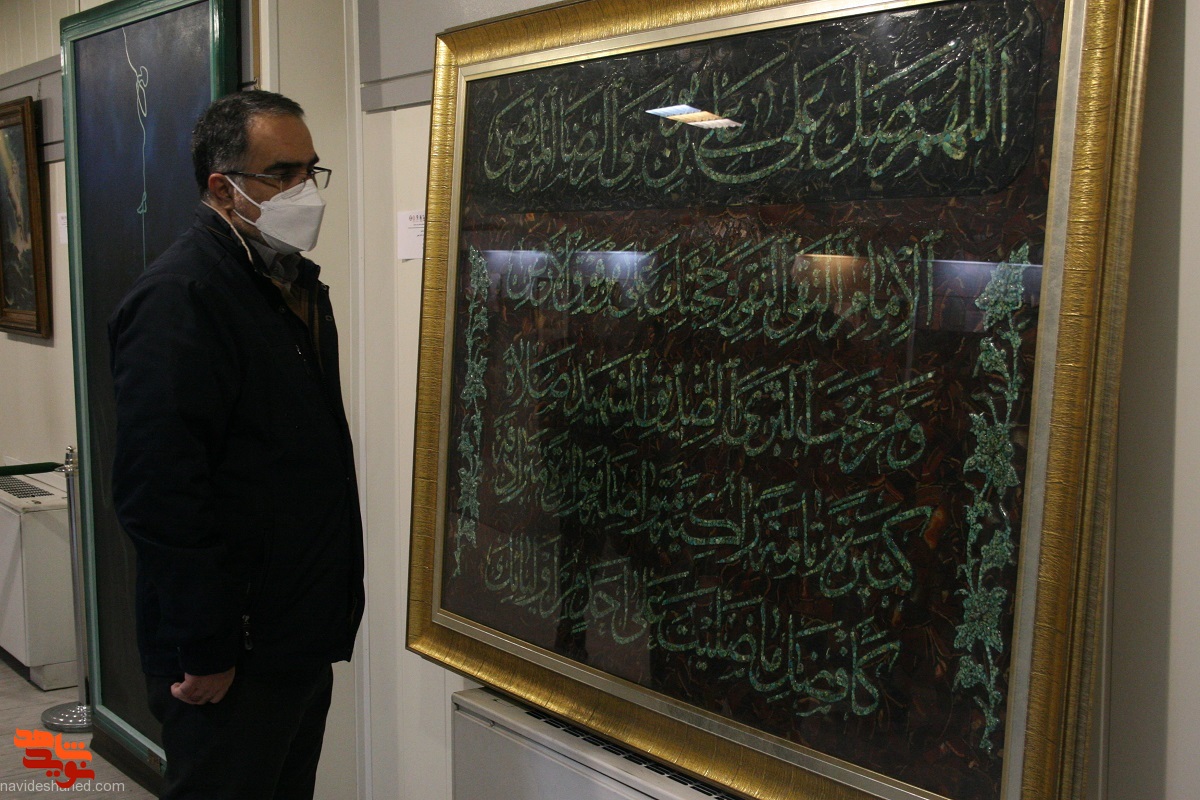 اللهم صل علی علی بن موسی الرضا المرتضی
الامام التقی النقی و حجتک علی من فوق الارض
و من تحت الثری الصدیق الشهید صلاة
کثیرة تامة زاکیة متواصلة متواترة مترادفة
کافضل ما صلیت علی احد من اولیائک
نوید شاهد
navideshahed.com